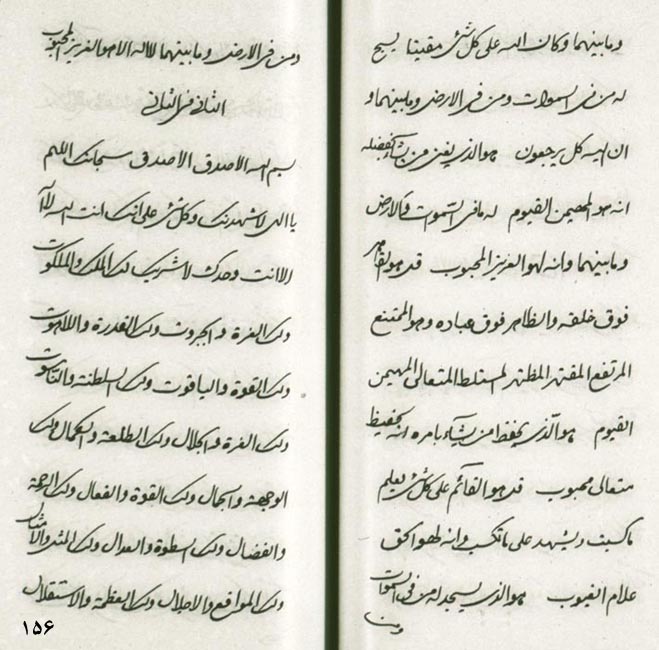 وما بينهما وكان الله على كل شئ مقيتا يسبح
له من في السموات ومن في الارض وما بينهما و
ان اليه كل يرجعون هو الذي يغني من يشاء بفضله
انه هو المهيمن القيوم له ما في السموت والارض
وما بينهما وانه لهو العزيز المحبوب قل هو القاهر
فوق خلقه والظاهر فوق عباده وهو الممتنع
المرتفع المقتدر المظتهر المستلط المتعالي المهيمن
القيوم هو الذي يحفظ من يشاء بامره انه لحفيظ
متعالي محبوب قل هو القائم على كل شئ يعلم
ما كسبت ويشهد على ما تكسب وانه لهو الحق
علام الغيوب هو الذي يسجد له من في السموات
ومن
ومن في الارض وما بينهما لا اله الا هو العزيز المحبوب
الثاني في الثاني
بسم الله الاصدق الاصدق سبحانك اللهم
يا الهي لاشهدنك وكل شئ على انك انت الله لا اله
الا انت وحدك لا شريك لك لك الملك والملكوت
ولك العزة والجبروت ولك القدرة واللاهوت
ولك القوة والياقوت ولك السلطنة والناسوت
ولك العزة والجلال ولك الطلعة والكمال ولك
الوجهة والجمال ولك القوة والفعال ولك الرحمة
والفضال ولك السطوة والعدال ولك المثل والامثال
ولك المواقع والاجلال ولك العظمة والاستقلال
١٥۶